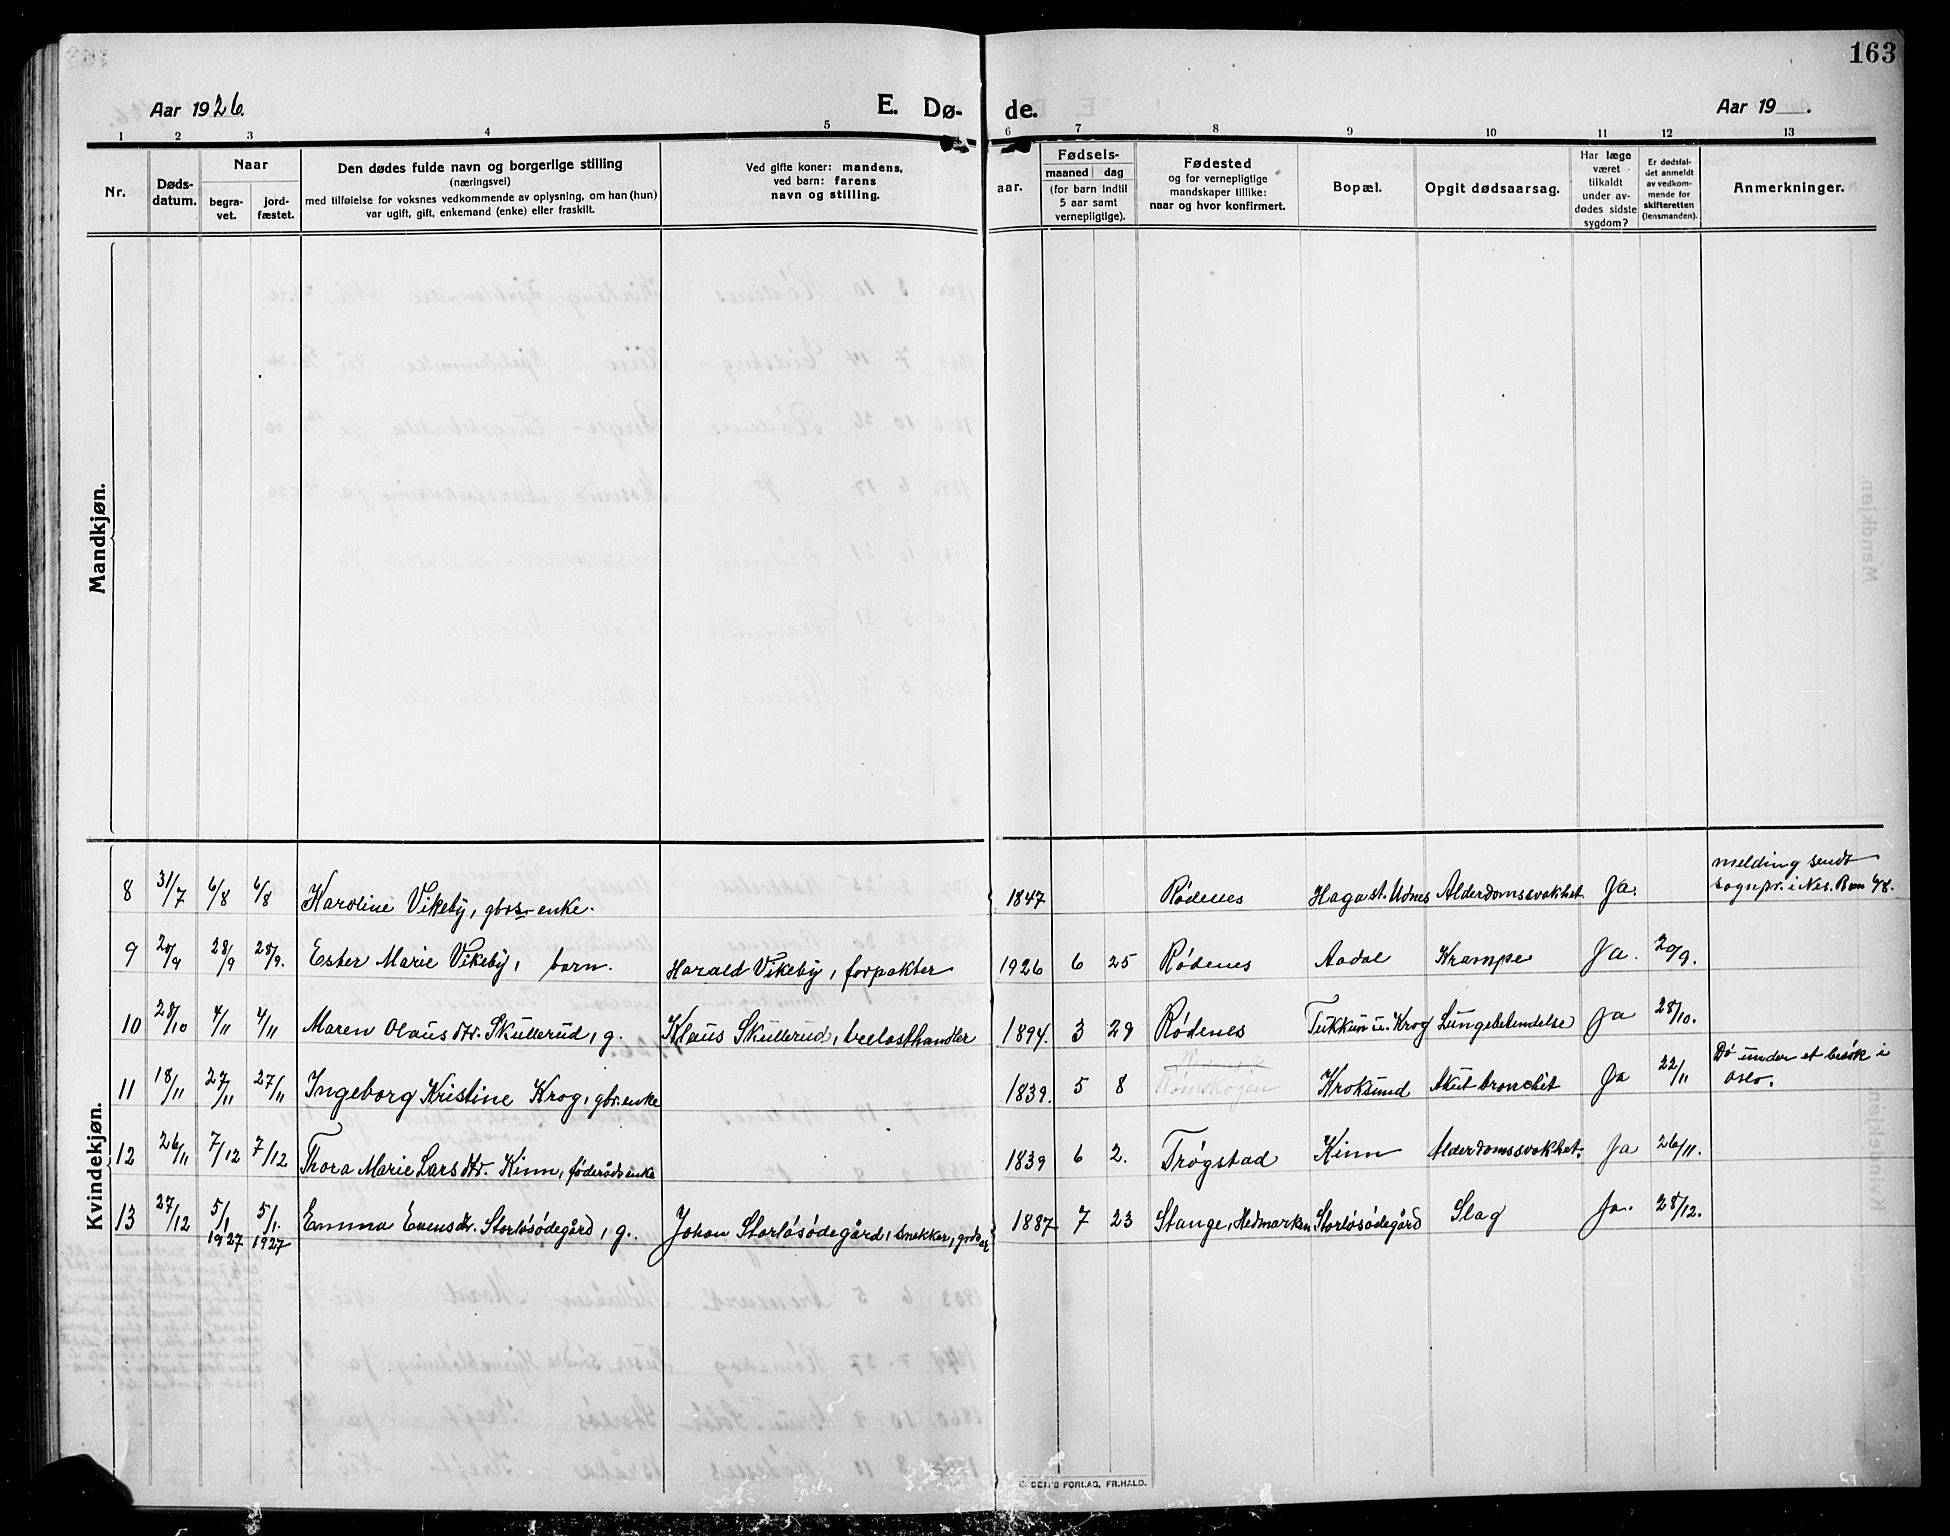 163
Aar 1926.
E. Dø-
de.
Aar 19 .
1 2 3 4 5 6 7 8 9 10 11 12 13
Nr.
Døds-
datum.
Naar
begra-
vet.
jord-
fæstet.
Den dødes fulde navn og borgerlige stilling
(næringsvei)
med tilføielse for voksnes vedkommende av oplysning, om han (hun)
var ugift, gift, enkemand (enke) eller fraskilt.
Ved gifte koner: mandens,
ved barn: farens
navn og stilling.
aar.
Fødsels-
maaned dag
(for barn indtil
5 aar samt
vernepligtige).
Fødested
og for vernepligtige
mandskaper tillike:
naar og hvor konfirmert.
Bopæl.
Opgit dødsaarsag.
Har læge
været
tilkaldt
under av-
dødes sidste
sygdom?
Er dødsfal-
det anmeldt
av vedkom-
mende for
skifteretten
(lensmanden).
Anmerkninger.
Mandkjøn.
Kvindekjøn.
8 31/7 6/8 6/8 Karoline Vikeby, gbrs enke. 1847 Rødenes Haga st. Udnes Alderdomssvakhet Ja. melding sendt
sognpr. i Nes. Rom
9 29/9 28/9. Ester Marie Vikeby, barn. Harald Vikeby, forpakter 1926 6 25 Rødenes Aadal Krampe Ja. 20/9.
10 28/10 4/11 4/11 Maren Olausdtr. Skullerud, g. Klaus Skullerud, trelasthandler 1894. 3 29 Rødenes Tukkun u. Krog Lungebetendelse Ja 28/10.
11 18/11 27/11 27/11 Ingeborg Kristine Krog, gbr. enke 1839. 5 8 Rømskogen Kroksund Akut bronchit Ja 22/11 Dø under et besøk i
Oslo.
12 26/11 7/12 7/12 Thora Marie Larsdtr. Kinn, føderådsenke 1839 6 2. Trøgstad Kinn Alderdomssvakhet. Ja 26/11.
13 27/12 5/1 1927 5/1. 1927 Emma Evensdtr. Storløsødegård, g. Johan Storløsødegård, snekker, 1887 7 23 Stange, Hedmarken Storløsødegård Slag Ja. 28/12.
SEN'S FORLAG, FR.HALD.